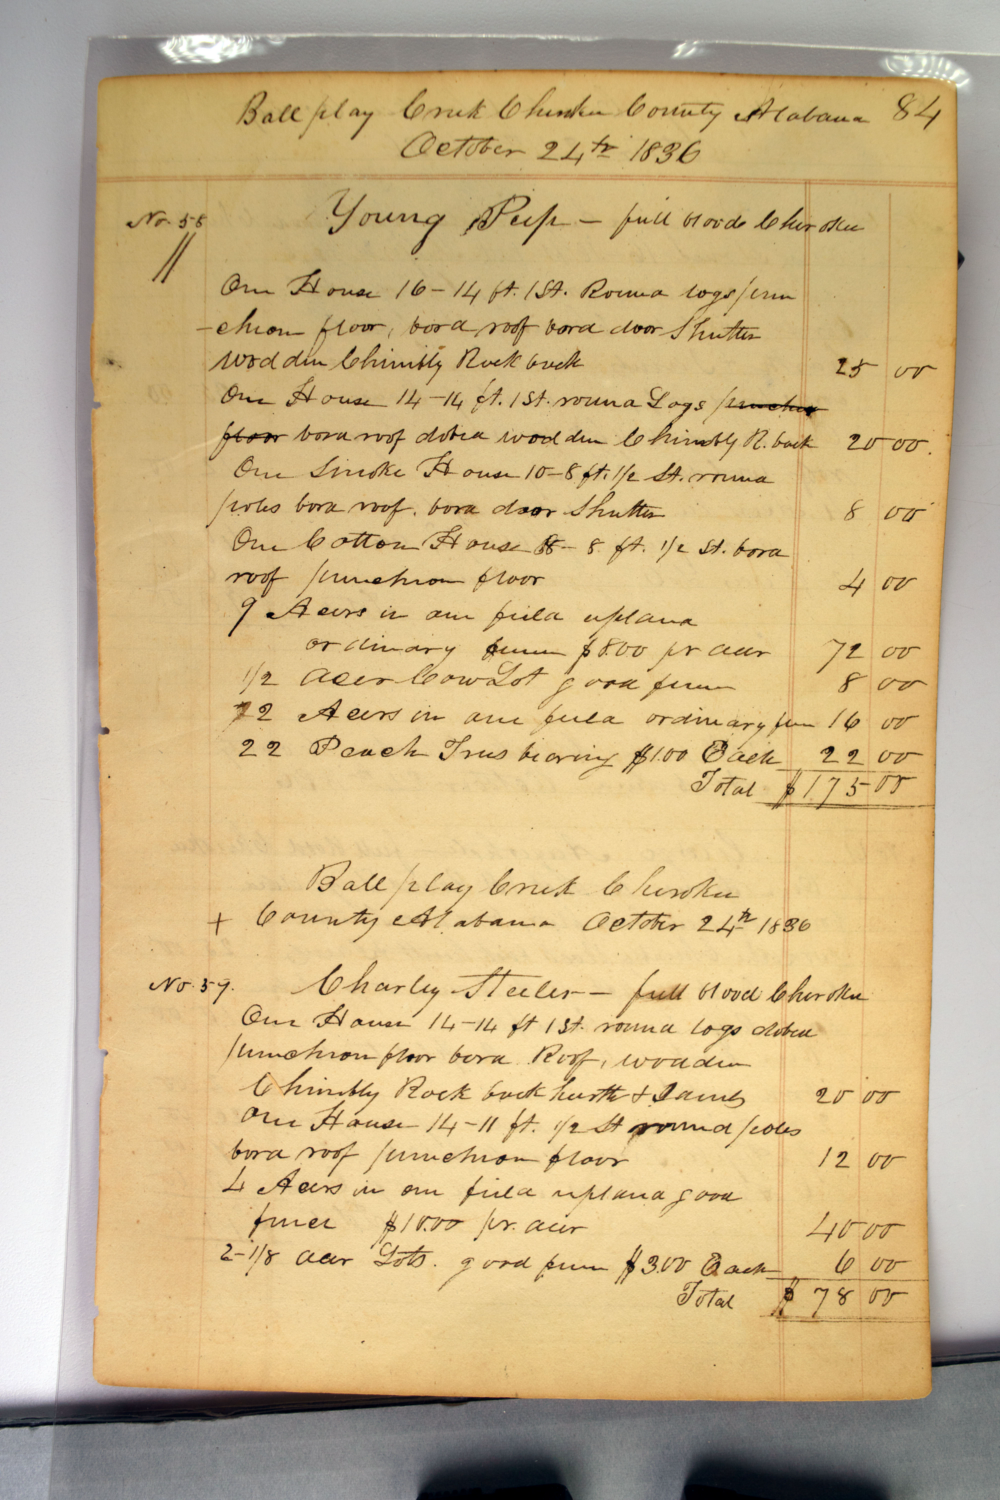 Ball play Creek Cherokee County Alabama 84
October 24th 1836
No. 58 Young Peep — full blood Cherokee
One House 16-14 ft. 1 St. Round logs pun
-cheon floor, bord roof bord door Shutter
wodden Chimbly Rock back 25 00
One House 14-14 ft. 1 St. round Logs puncheon
floor bord roof dobed wodden Chimbly R. back 20 00.
One Smoke House 10-8 ft. 1/2 St. round
poles bord roof. bord door Shutter 8 00
One Cotton House 8-8 ft. 1/2 St. bord
roof puncheon floor 4 00
9 Acers in one field upland
ordinary fence $8.00 pr acer 72 00
1/2 acer Cow Lot good fence 8 00
2 Acers in one field ordinary fen 16 00
22 Peach Trees bearing $1.00 Each 22 00
Total $175 00
Ball play Creek Cherokee
+ County Alabama October 24th 1836
No. 59. Charley Steeler — full blood Cherokee
One House 14-14 ft 1 St. round logs dobed
puncheon floor bord Roof, wooden
Chimbly Rock back hearth & Jambs 20 00
One House 14-11 ft. 1/2 St round poles
bord roof puncheon floor 12 00
4 Acers in one field upland good
fence $10.00 pr. acer 40 00
2-1/8 acer Lots. good fence $3.00 Each 6 00
Total $ 78 00